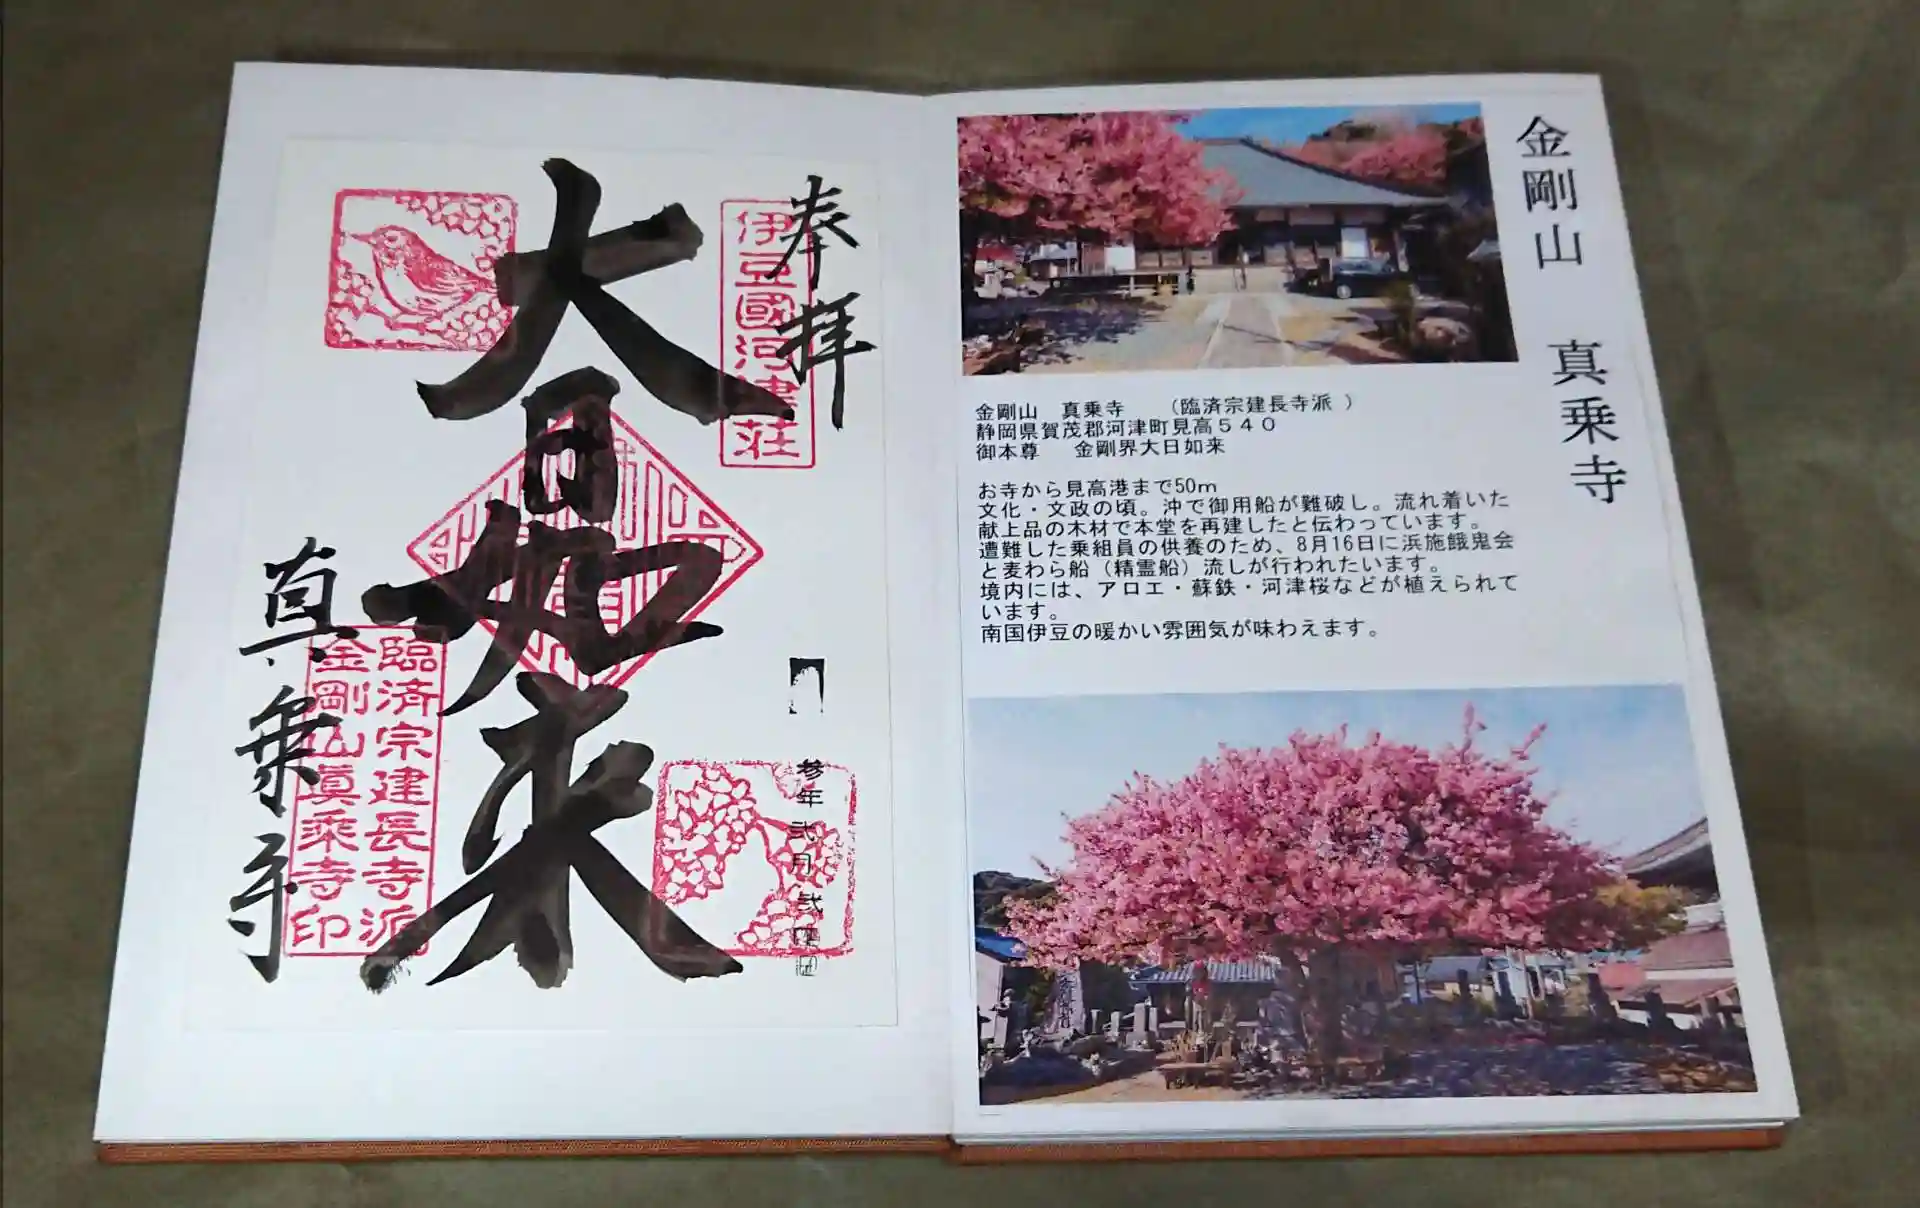 奉拝
伊豆國河津荘
大日如来
参年弐月弐
真乗寺
臨済宗建長寺派
金剛山真乗寺印
金剛山　真乗寺
金剛山　真乗寺　（臨済宗建長寺派 ）
静岡県賀茂郡河津町見高５４０
御本尊　金剛界大日如来
お寺から見高港まで50m
文化・文政の頃。沖で御用船が難破し。流れ着いた
献上品の木材で本堂を再建したと伝わっています。
遭難した乗組員の供養のため、8月16日に浜施餓鬼会
と麦わら船（精霊船）流しが行われたいます。
境内には、アロエ・蘇鉄・河津桜などが植えられて
います。
南国伊豆の暖かい雰囲気が味わえます。